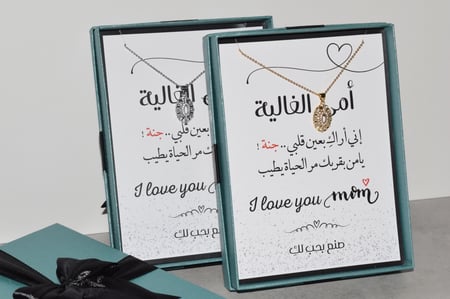 أمي الغالية
إني أراكِ بعين قلبي .. جنة !
يامن بقربك مر الحياة يطيب
I love you mom
صنع بحب لكِ
الغالية
بعين قلبي .. جنة !
مر الحياة يطيب
I love you
صنع بحب لكِ